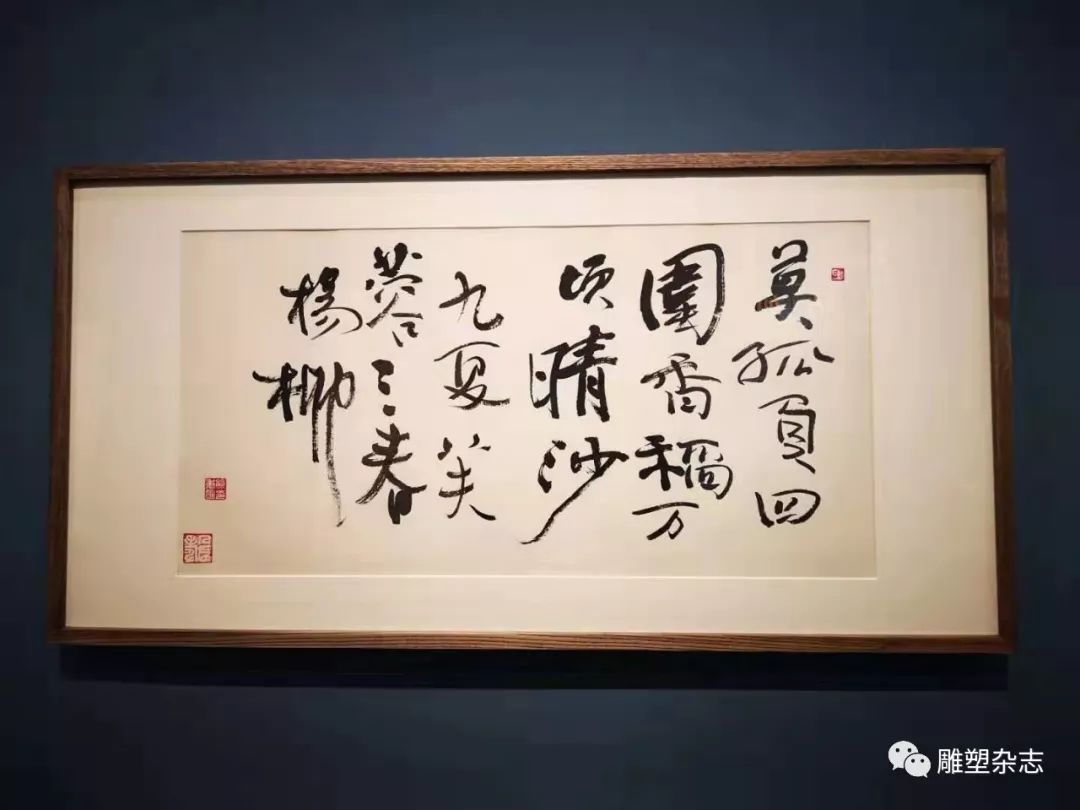 莫孤負四
圍香稻万
顷晴沙
九夏芙
蓉三春
楊柳
雕塑杂志